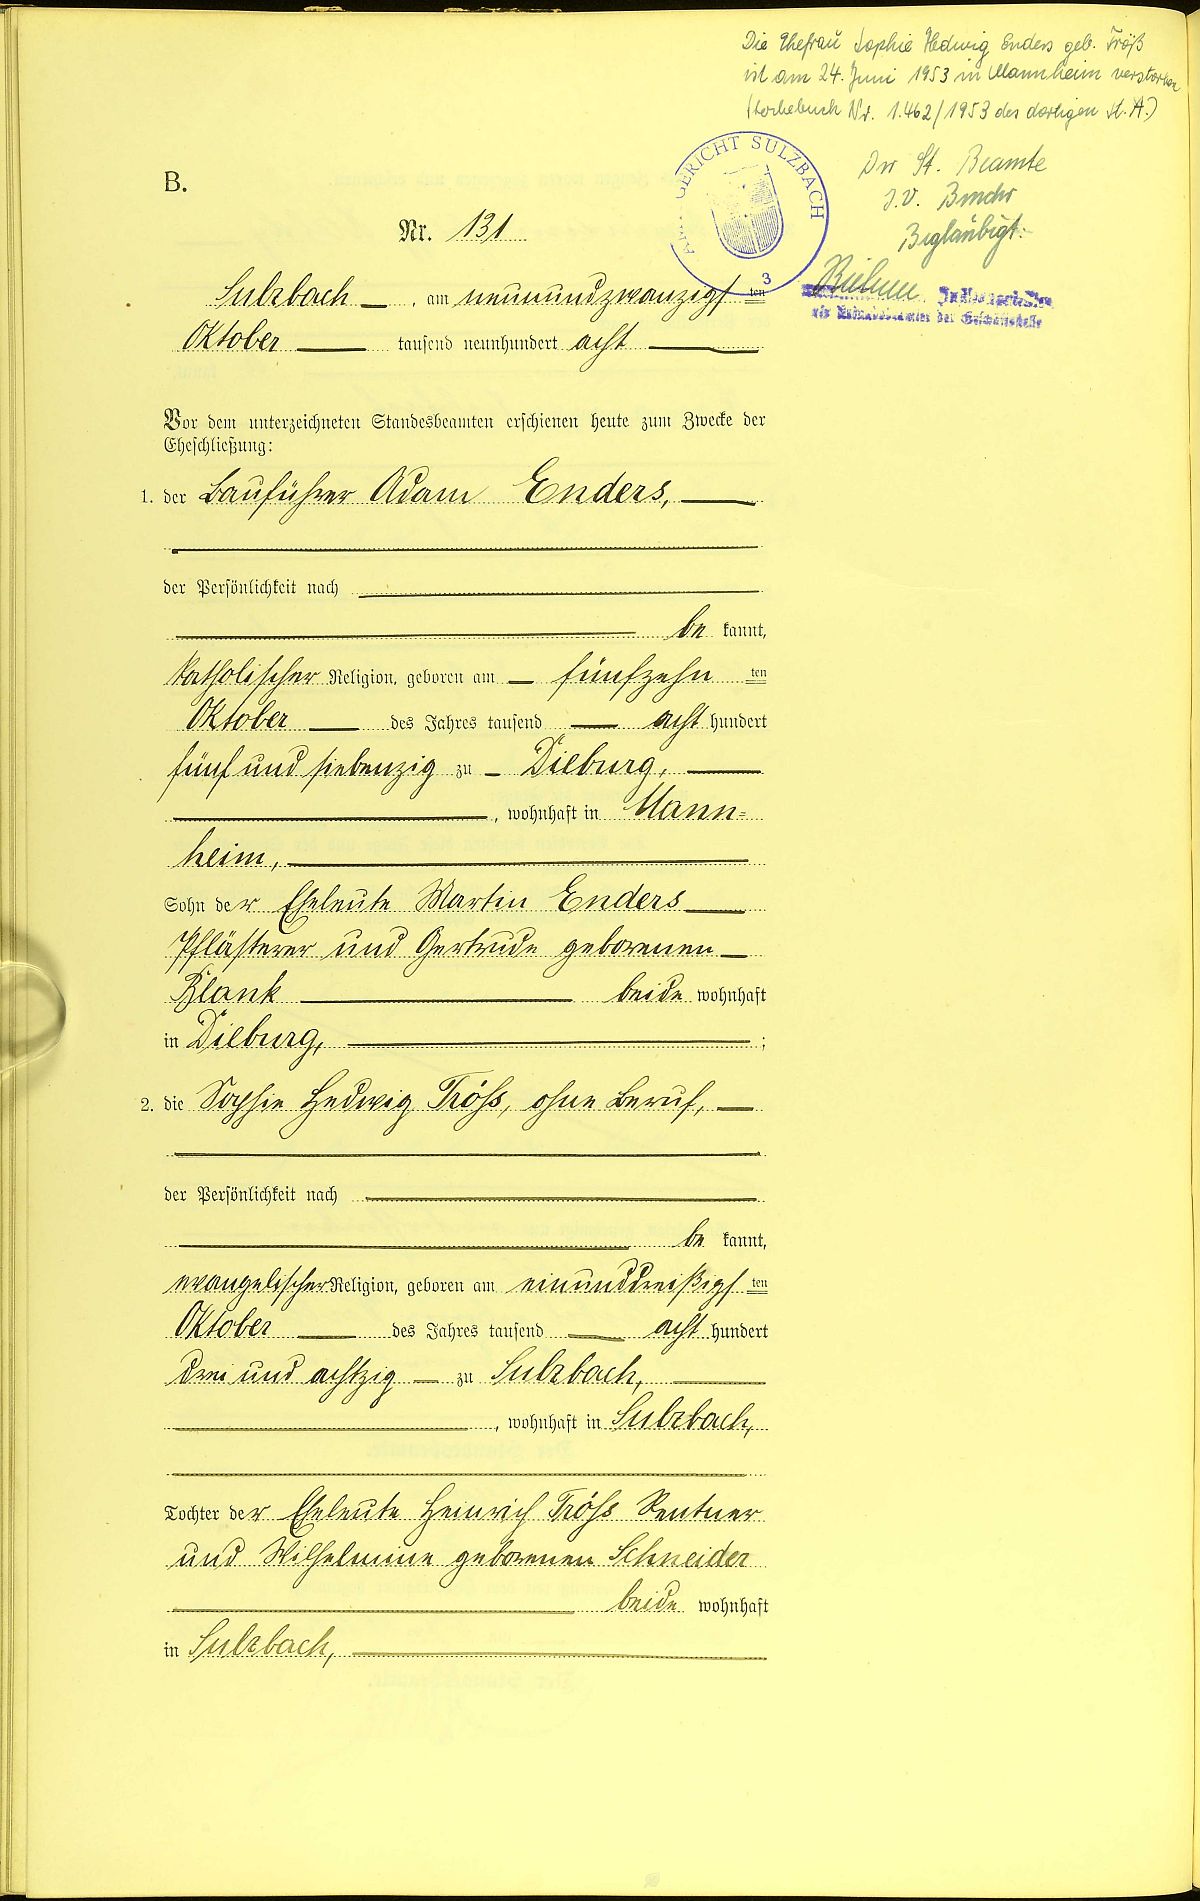 Die Ehefrau Sophie Hedwig Enders geb. Tröß
ist am 24. Juni 1953 in Mannheim verstorben
(Sterbebuch Nr. 1.462/1953 des dortigen St. A.)
Der St. Beamte
J.V.
Beglaubigt:
GERICHT SULZBACH
3
als Urkundsbeamter der Geschäftsstelle
B.
Nr. 131
Sulzbach, am neunundzwanzigsten
Oktober tausend neunhundert acht
Vor dem unterzeichneten Standesbeamten erschienen heute zum Zwecke der
Eheschließung:
1. der Bauführer Adam Enders,
der Persönlichkeit nach
be kannt,
katholischer Religion, geboren am fünfzehn ten
Oktober des Jahres tausend acht hundert
fünf und siebenzig zu Dieburg,
, wohnhaft in Mann=
heim,
Sohn der Eheleute Martin Enders
Pflästerer und Gertrude geborenen
Blank beide wohnhaft
in Dieburg, ;
2. die Sophie Hedwig Tröß, ohne Beruf,
der Persönlichkeit nach
be kannt,
evangelischer Religion, geboren am einunddreißigsten
Oktober des Jahres tausend acht hundert
drei und achtzig zu Sulzbach,
, wohnhaft in Sulzbach,
Tochter der Eheleute Heinrich Tröß Rentner
und Wilhelmine geborenen Schneider
beide wohnhaft
in Sulzbach,